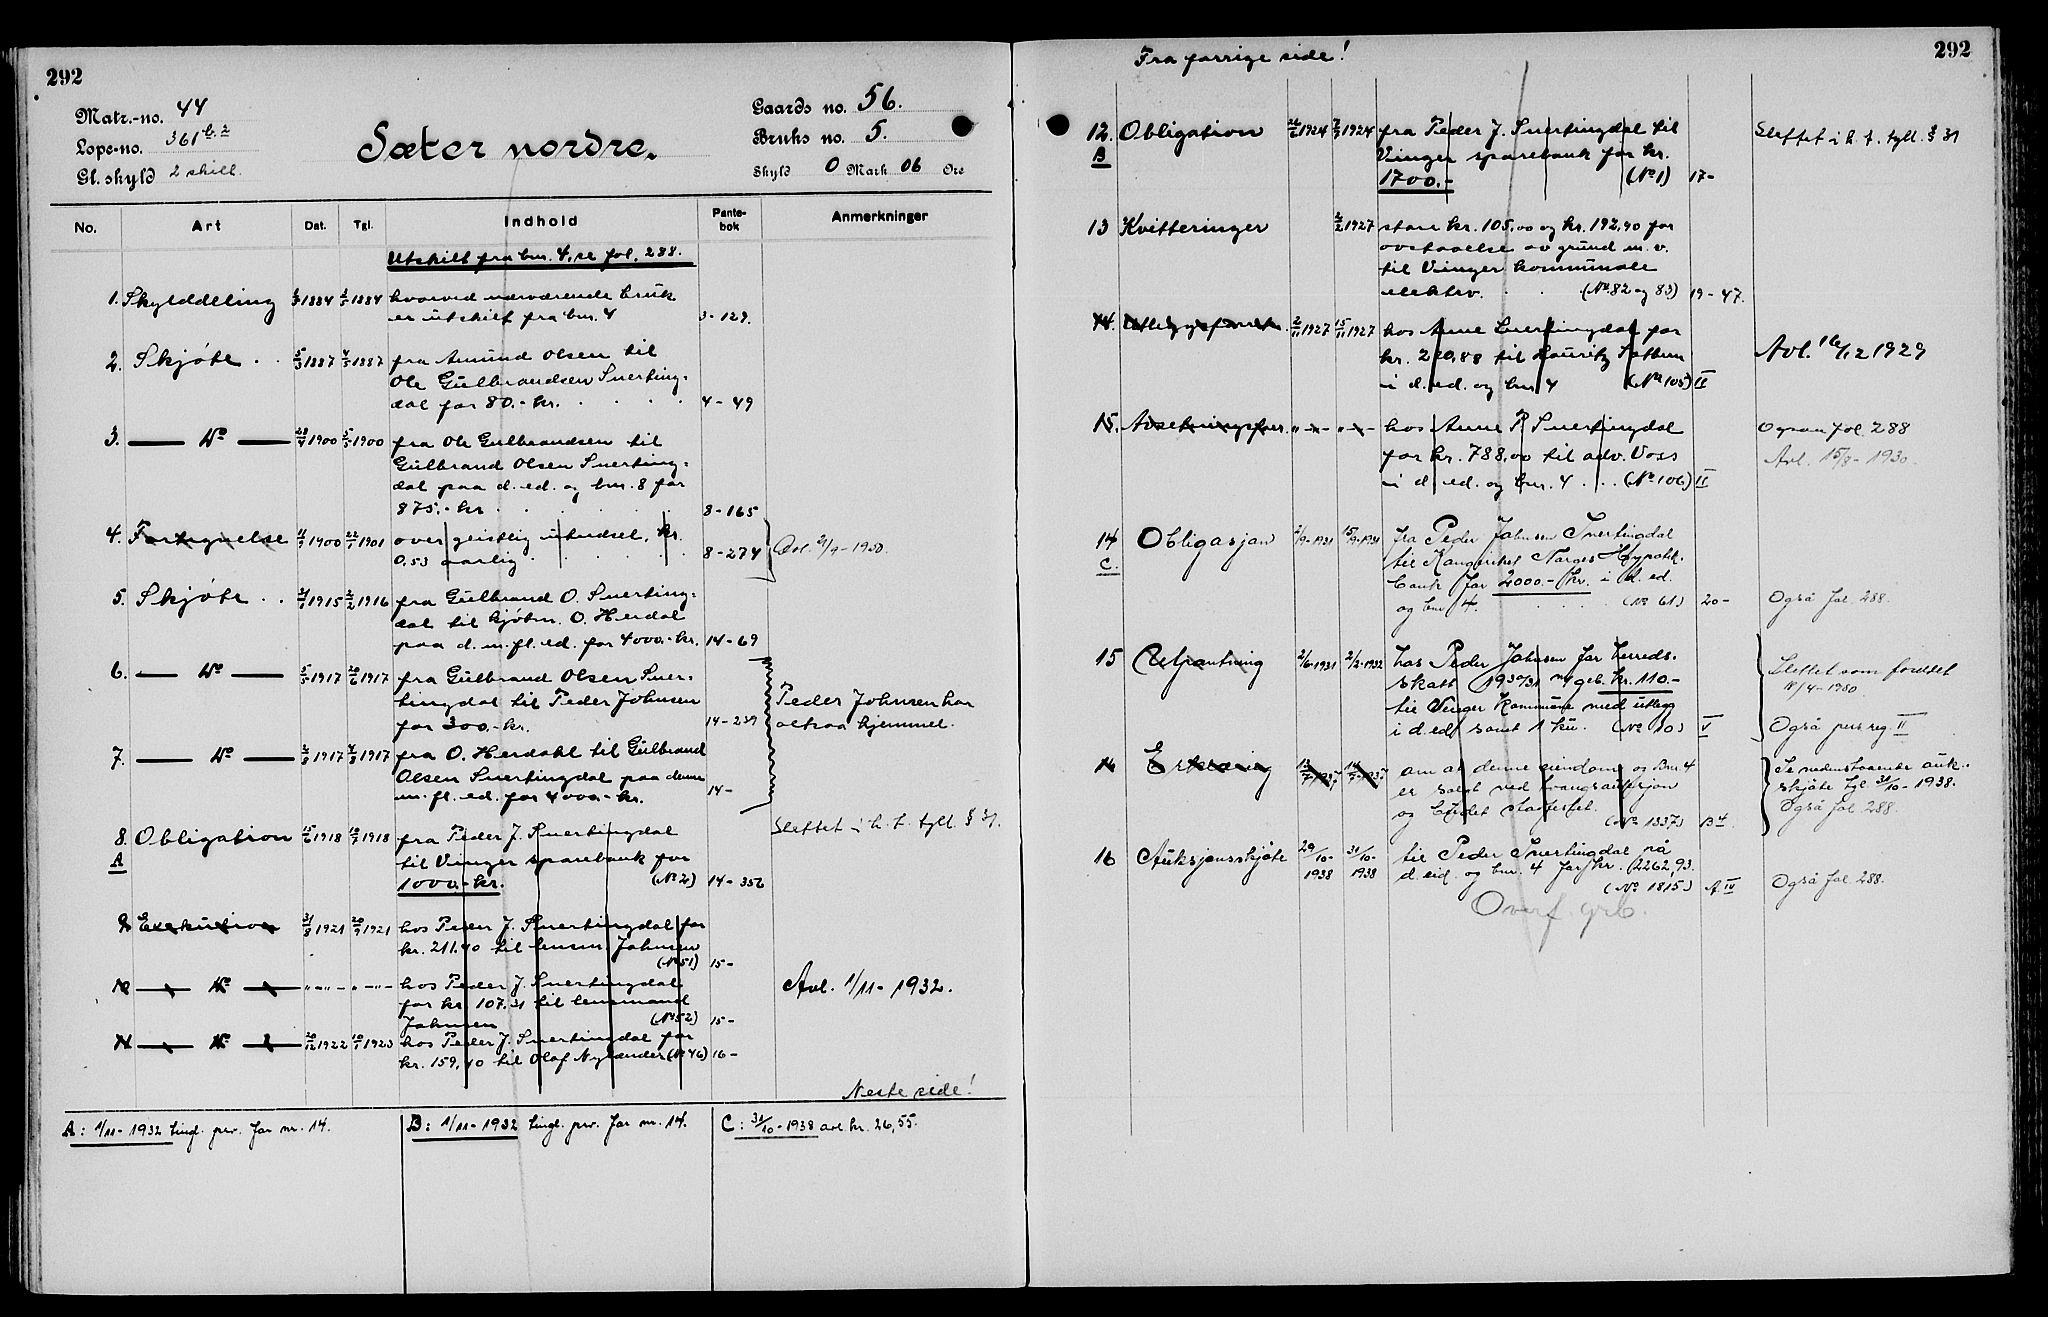 292
Matr.-no. 44
Lope-no. 361 b. 2
Gl. skyld 2 skill.
Sæter nordre.
Gaards no. 56.
Bruks no. 5.
Skyld 0 Mark 06 Øre
No. Art Dat. Tgl. Indhold Pante-bok Anmerkninger
Utskilt fra bnr. 4, se fol. 288.
1. Skylddeling 1884 1884 hvorved nærværende bruk
er utskilt fra bnr. 4 3-129.
2. Skjøte . . 1887 1887 fra Amund Olsen til
Ole Gulbrandsen Snerting-
dal for 80.- kr. . . . . 4-49
3. — Do — 1900 1900 fra Ole Gulbrandsen til
Gulbrand Olsen Snerting-
dal paa d. ed. og bnr. 8 for
875.- kr . . . . . 8-165
4. Fortegnelse 1900 1901 over geistlig utredsel, kr.
0,53 aarlig . . . . 8-274
Avl. 2/9-1950.
5. Skjøte . . 1915 1916 fra Gulbrand O. Snerting-
dal til kjøbm. O. Herdal
paa d. m. fl. ed. for 4000.- kr. 14-69
6. — Do — 5/5 1917 20/6 1917 fra Gulbrand Olsen Sner-
tingdal til Peder Johnsen
for 300.- kr. 14-239
Peder Johnsen har
altsaa hjemmel.
7. — Do — 1917 1917 fra O. Herdahl til Gulbrand
Olsen Snertingdal paa denne
m. fl. ed. for 4000.- kr. 14-
8. Obligation 1918 1918 fra Peder J. Snertingdal
A til Vinger sparebank for
1000.- kr. (No 2) 14-356
Slettet i h. t. tgll. § 31.
9 Exekution 1921 1921 hos Peder J. Snertingdal for
kr. 211.40 til lensm. Johnsen
(No 51) 15-
10 — Do — " - " - " - " - hos Peder J. Snertingdal
for kr 107.31 til lensmand
Johnsen (No 52) 15-
Avl. 1/11-1932.
11 — Do — 1922 1923 hos Peder J. Snertingdal for
kr. 159,40 til Olaf Nylænder (No 46) 16-
Neste side!
A: 1/11-1932 tingl. prv. for nr. 14.
B: 1/11-1932 tingl. prv. for nr. 14.
C: 31/10-1938 avl kr. 26,55.
Fra forrige side!
292
12. Obligation 1924 1924 fra Peder J. Snertingdal til
B Vinger sparebank for kr.
1700.- (No 1) 17-
Slettet i h. t. tgll. § 31
13 Kvitteringer 1927 store kr. 105,00 og kr. 192,40 for
avstaaelse av grund m. v.
til Vinger kommunale
elektrv. . . (No 82 og 83) 19-47.
14. Utlægsforretn. 2/11 1927 15/11 1927 hos Anne Snertingdal for
kr. 220,88 til Lauritz
i d. ed. og bnr 4 (No 105) II
Avl. 16/12 1929
15. Avsetningsforr. " - " - " - " - hos Anne P. Snertingdal
for kr. 788,00 til adv. Voss
i d. ed. og bnr. 4 . . (No 106) II
Ogsaa fol. 288
Avl. 15/8-1930.
14 Obligasjon 2/9-1931 15/9-1931 fra Peder Johnsen Snertingdal
C. til Kongeriket Norges Hypotek-
bank for 2000.- kr. i d. ed.
og bnr 4. . . . (No 61) 20-
Også fol. 288.
15 Utpantning 2/6-1931 2/2-1932 hos Peder Johnsen for herreds-
skatt 1930/31 m/ geb. kr. 110.-
til Vinger Kommune med utlegg
i d. ed. samt 1 ku. (No 10) V
Slettet som foreldet
18/4-1950.
Også pers. reg. II
16 Erklæring 1937 1937 om at denne eiendom og Bnr. 4
er solgt ved tvangsauksjon
og budet stadfestet. (No 1337) B4
Se nedenstaaende auk.-
skjøte tgl. 31/10-1938.
Også fol 288.
16 Auksjonsskjøte 29/10-1938 31/10-1938 til Peder Snertingdal på
d. eid. og bnr. 4 for kr. 2262,93.
(No 1815) A IV
Også fol. 288.
Overf. grb.